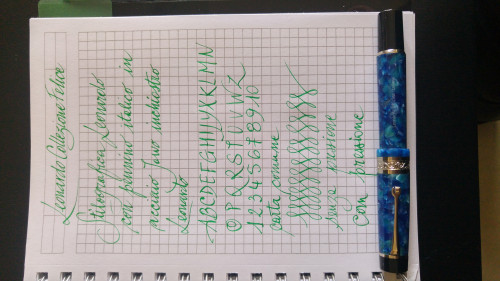 Leonardo Collezione Felice
Stilografica Leonardo
con pennino italico in
acciaio Jowo inchiostro
Leonardo
ABCDEFGHIJYXKLMN
OPQRSTUVWZ
12345678910
carta comune
senza pressione
con pressione